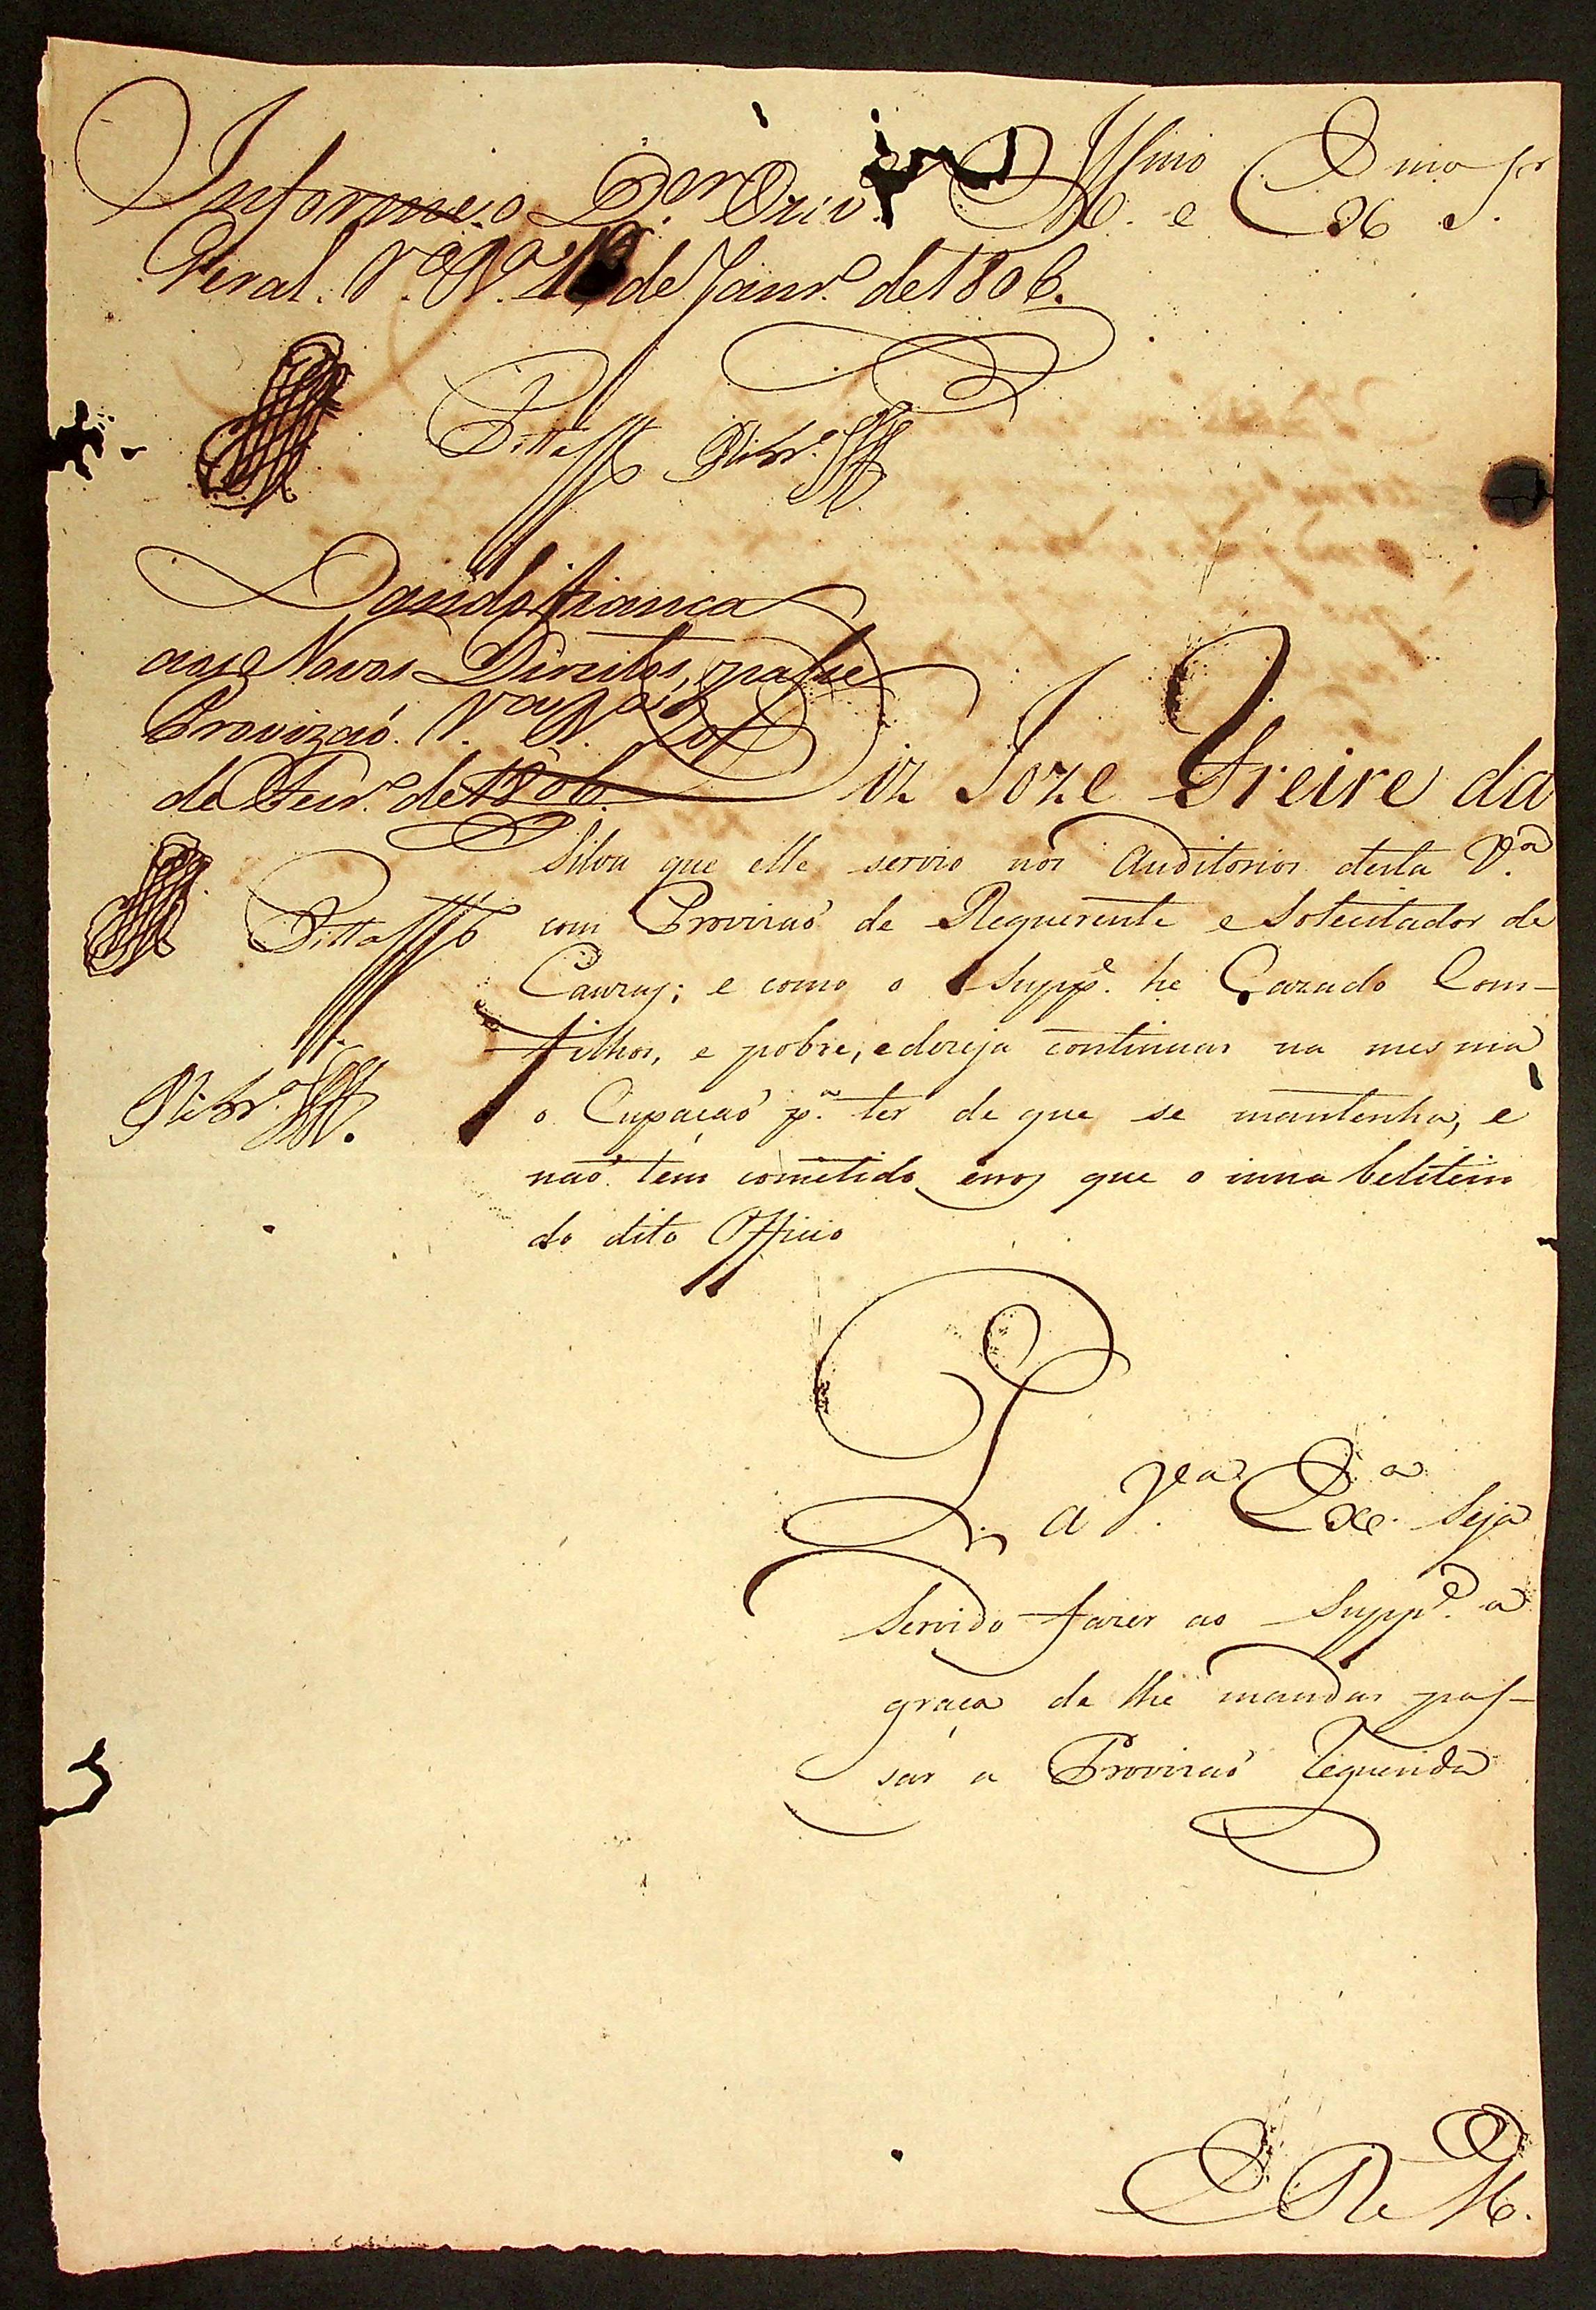 Informe o D.or Ouv.
Geral. V.a N.a de Janr.o de 1806.
Ill.mo e Ex.mo Sr.
Pitta Ribr.o
Dando fiança
aos Novos Direitos, passe
Provizaó. V.a N.a
de Fevr.o de 1806.
Pitta
Ribr.o
Diz Joze Freire da
Silva que elle servio nos Auditorios desta V.a
com Provizaó de Requerente e Solecitador de
Cauzas; e como o Supp.e he Cazado Com
filhos, e pobre, e dezeja continuar na mesma
o Cupaçaó p.a ter de que se mantenha, e
naó tem cometido erros que o inna belitem
do dito Officio
P. a V.a Ex.a Seja
Servido fazer ao Supp.e a
graça de lhe mandar pas-
sar a Provizaó requerida
E R M.ce